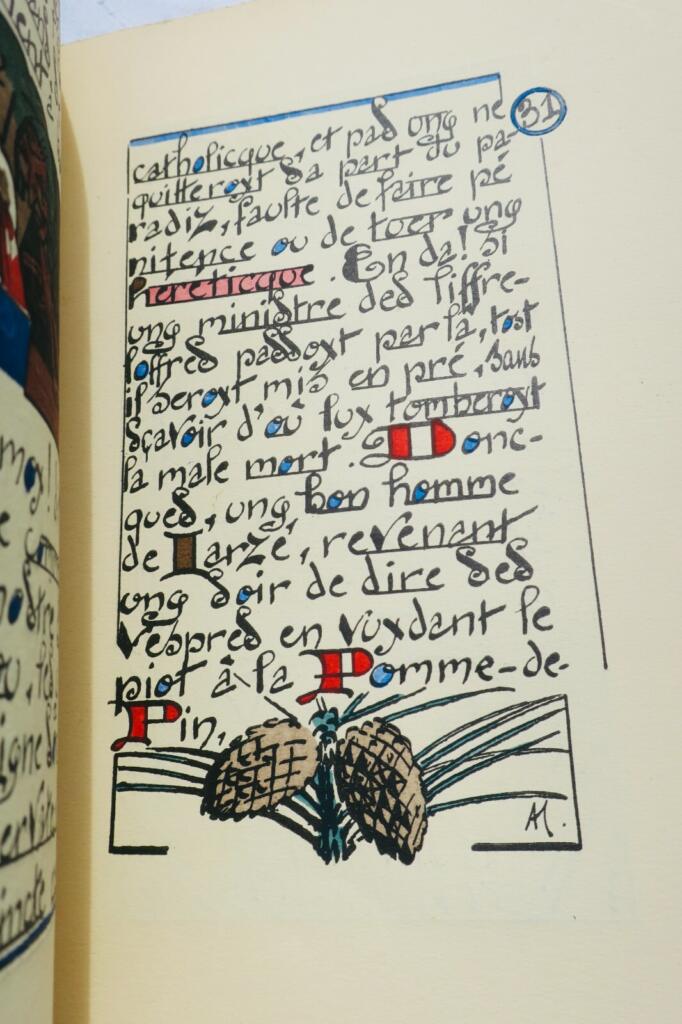 31
catholicque, et pas ung ne
quitteroyt sa part du pa-
radiz, faulte de faire pé
nitence ou de tuer ung
hereticque. En da! Si
ung ministre des liffre-
loffres passoyt par là, tost
il seroyt mis en pré, sans
sçavoir d'où luy tomberoyt
la male mort. Donc-
ques, ung bon homme
de Iarzé, revenant
ung soir de dire ses
vespres en vuydant le
piot à la Pomme-de-
Pin,
AM.